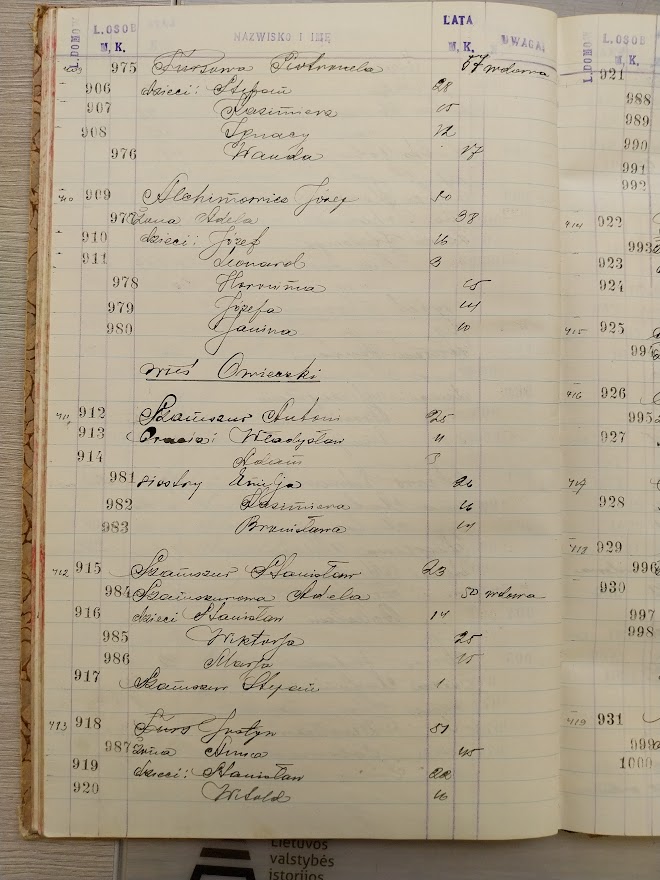 L.DOMÓW L. OSÓB M. K. NAZWISKO I IMIĘ LATA M. K. UWAGI
409 975 Fursowa Piotronela 57 wdowa
906 dzieci: Stefan 28
907 Kazimierz 15
908 Ignacy 12
976 Wanda 17
410 909 Alchimowicz Józef 50
977 żona Adela 38
910 dzieci: Józef 16
911 Leonard 3
978 15
979 Józefa 14
980 Janina 10
wieś Owieczki
411 912 Szanuszur Antoni 25
913 bracia: Władysław 11
914 Adam
981 siostry Emilja 26
982 Kazimiera 16
983 Bronisława 14
412 915 Szanuszur Stanisław 23
984 Szanuszurowa Adela 50 wdowa
916 dzieci Stanisław 14
985 Wiktorja 25
986 Marja 15
917 Szanuszur Stefan 1
413 918 Furs Justyn 51
987 żona Anna 45
919 dzieci: Stanisław 22
920 Witold 16
L.DOMÓW L. OSÓB M. K.
921
988
989
990
991
992
414 922
993
923
924
415 925
994
416 926
995
927
417
928
418 929
996
930
997
998
419 931
999
1000
Lietuvos
valstybės
istorijos